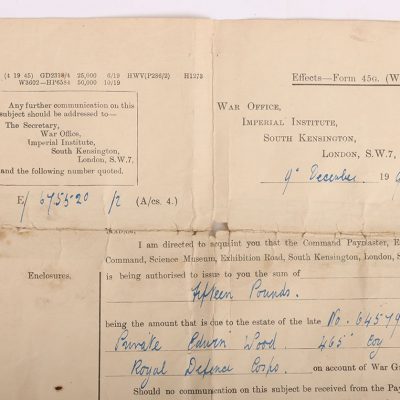 (4 19 45) GD2338/4 25,000 6/19 HWV(P236/2) H1273
W3602—HP6584 50,000 10/19
Effects—Form 45G. (W
Any further communication on this
subject should be addressed to—
The Secretary,
War Office,
Imperial Institute,
South Kensington,
London, S.W.7,
and the following number quoted.
WAR OFFICE,
IMPERIAL INSTITUTE,
SOUTH KENSINGTON,
LONDON, S.W. 7,
9th December 19
E/ 675520 /2 (A/cs. 4.)
I am directed to acquaint you that the Command Paymaster, E
Command, Science Museum, Exhibition Road, South Kensington, London, S
Enclosures.
is being authorised to issue to you the sum of
Fifteen Pounds.
being the amount that is due to the estate of the late No. 64579
Private Edwin Wood. 465 Coy
Royal Defence Corps. on account of War G
Should no communication on this subject be received from the Pa